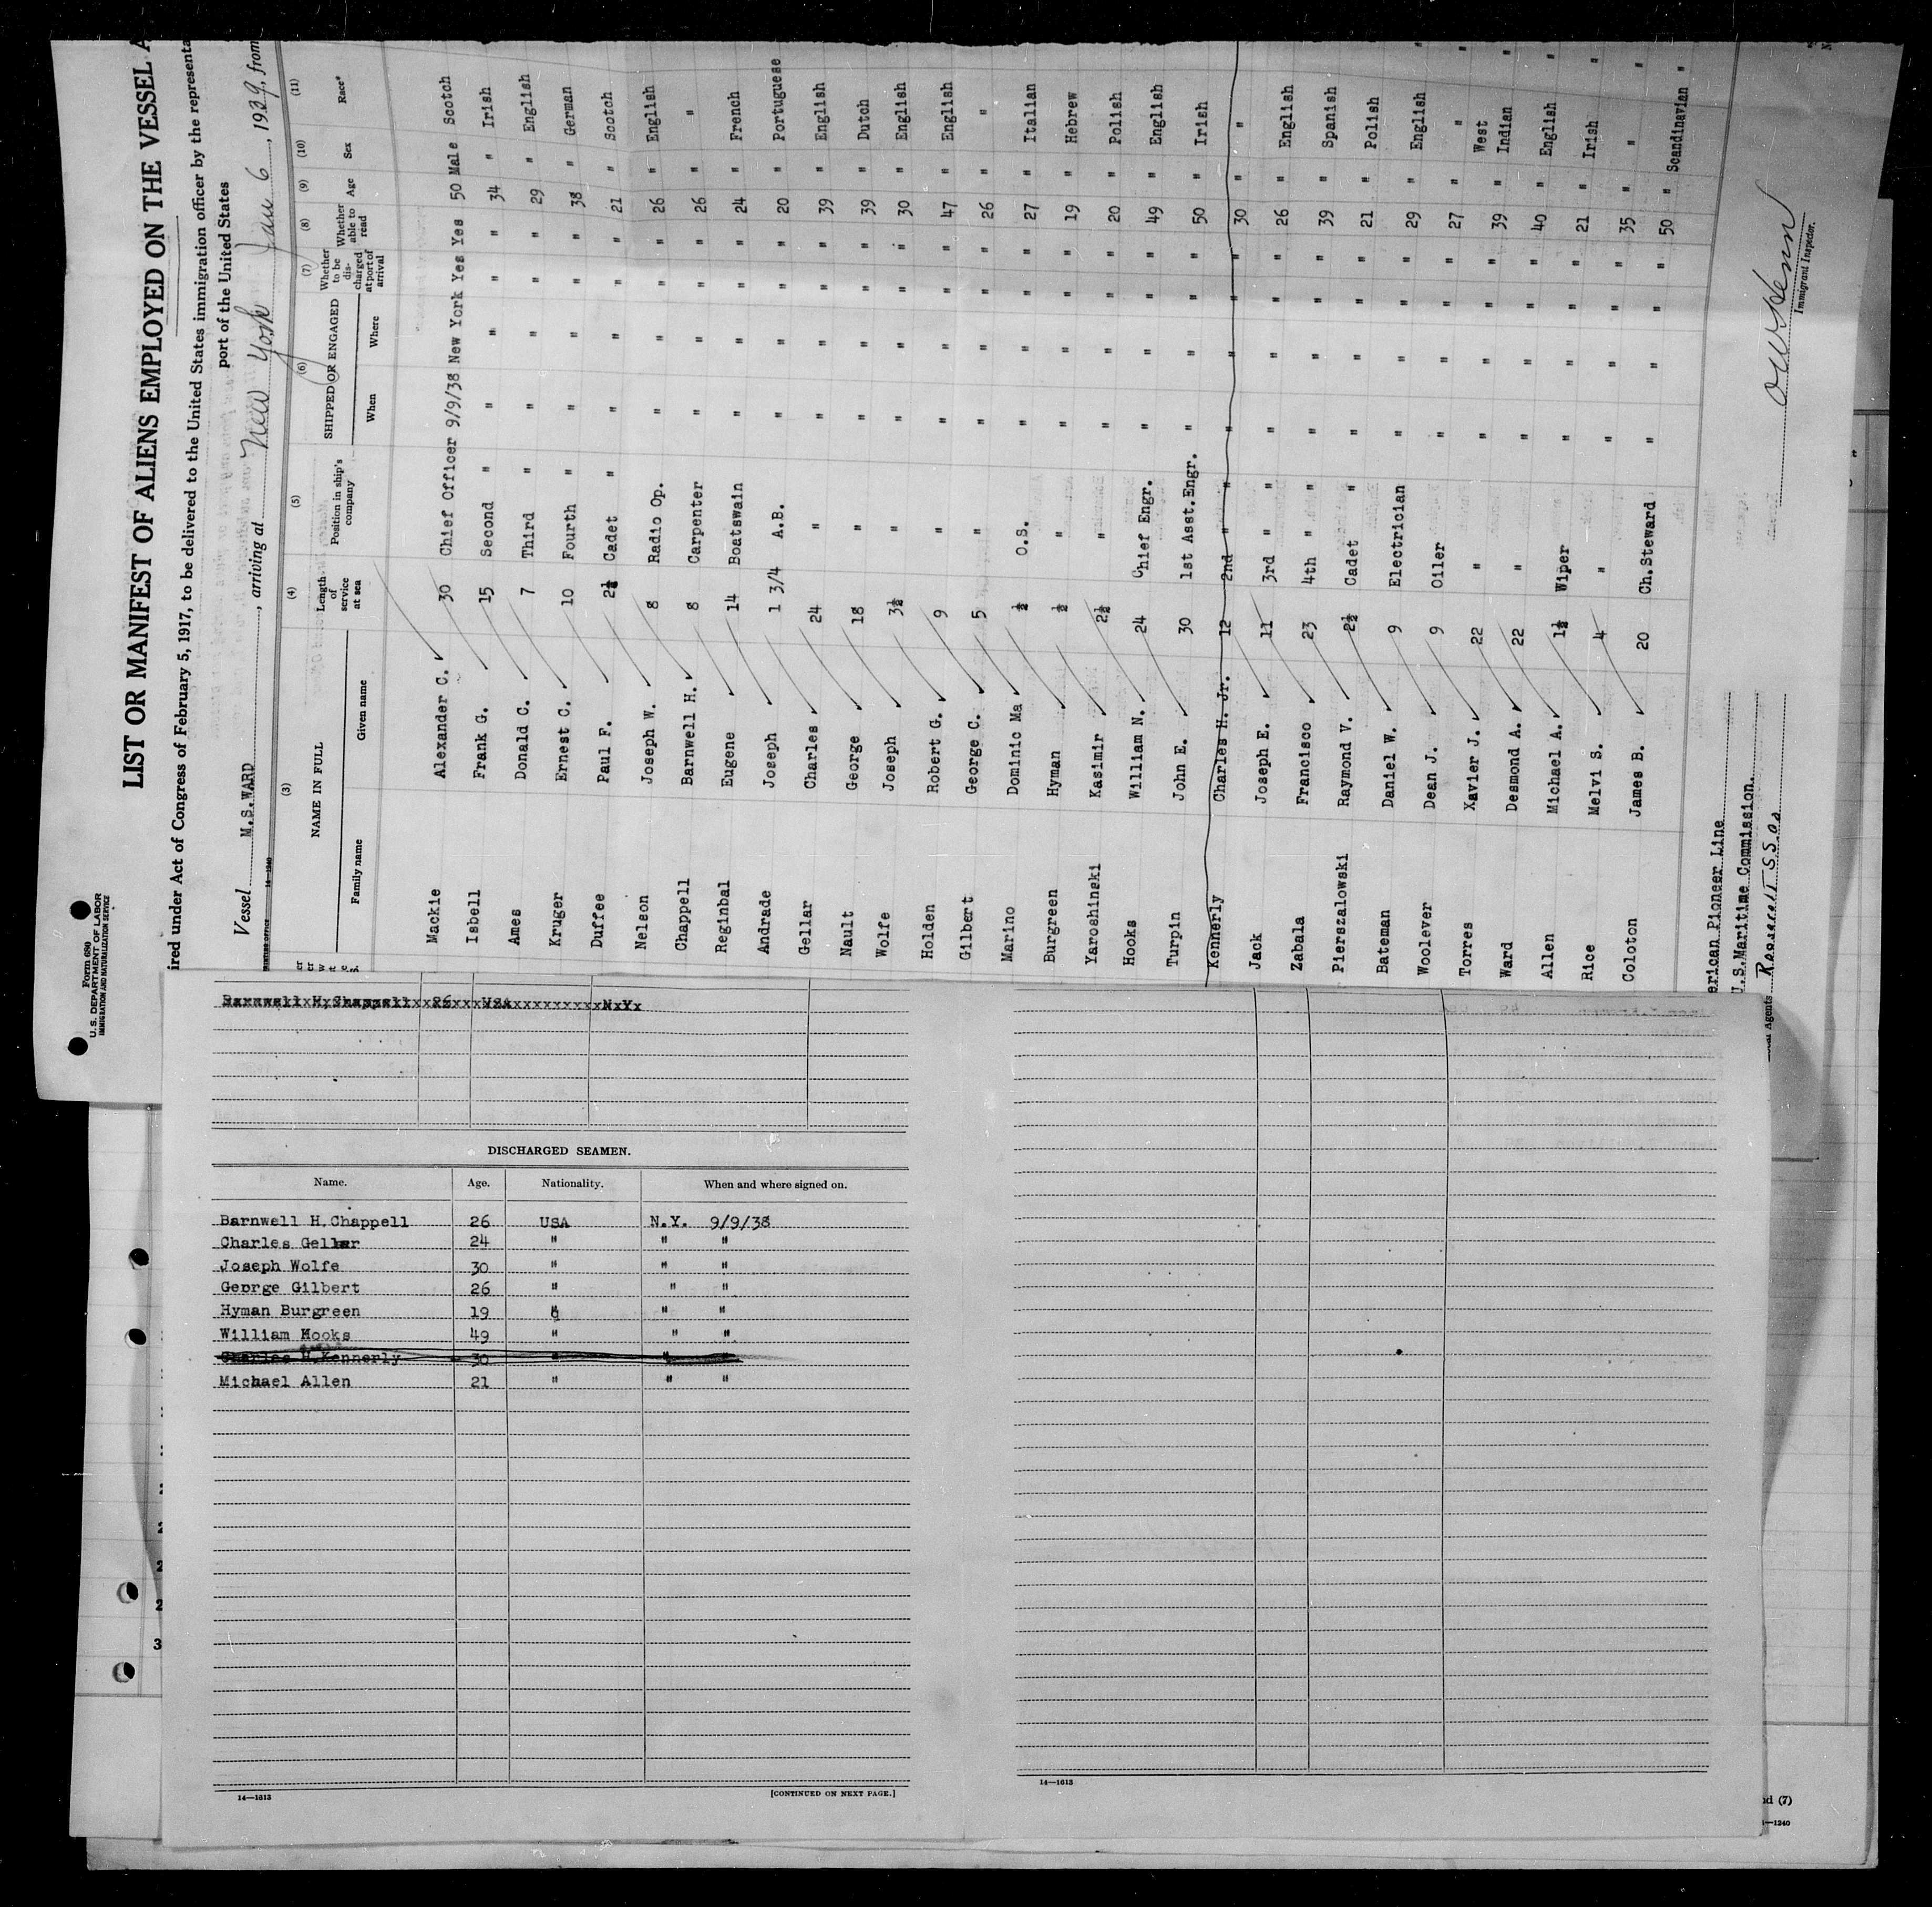 Form 680
U. S. DEPARTMENT OF LABOR
IMMIGRATION AND NATURALIZATION SERVICE
LIST OR MANIFEST OF ALIENS EMPLOYED ON THE VESSEL A
ired under Act of Congress of February 5, 1917, to be delivered to the United States immigration officer by the representa
port of the United States
Vessel M.S.WARD, arriving at New York Jan 6, 1939, from
14—1240
(3) (4) (5) (6) (7) (8) (9) (10) (11)
NAME IN FULL Length of service at sea Position in ship's company SHIPPED OR ENGAGED Whether to be discharged at port of arrival Whether able to read Age Sex Race*
Family name Given name When Where
Mackie Alexander C. 30 Chief Officer 9/9/38 New York Yes Yes 50 Male Scotch
Isbell Frank G. 15 Second " " " " " 34 " Irish
Ames Donald C. 7 Third " " " " " 29 " English
Kruger Ernest C. 10 Fourth " " " " " 38 " German
Duffee Paul F. 2½ Cadet " " " " " 21 " Scotch
Nelson Joseph W. 8 Radio Op. " " " " 26 " English
Chappell Barnwell H. 8 Carpenter " " " " 26 " "
Reginbal Eugene 14 Boatswain " " " " 24 " French
Andrade Joseph 1 3/4 A.B. " " " " 20 " Portuguese
Gellar Charles 24 " " " " " 39 " English
Nault George 18 " " " " " 39 " Dutch
Wolfe Joseph 3½ " " " " " 30 " English
Holden Robert G. 9 " " " " " 47 " English
Gilbert George C. 5 " " " " " 26 " "
Marino Dominic Ma ½ O.S. " " " " 27 " Italian
Burgreen Hyman ½ " " " " " 19 " Hebrew
Yaroshinski Kasimir 2½ " " " " " 20 " Polish
Hooks William N. 24 Chief Engr. " " " " 49 " English
Turpin John E. 30 1st Asst.Engr. " " " " 50 " Irish
Kennerly Charles H. Jr. 12 2nd " " " " " " 30 " "
Jack Joseph E. 11 3rd " " " " " " 26 " English
Zabala Francisco 23 4th " " " " " " 39 " Spanish
Pierszalowski Raymond V. 2½ Cadet " " " " " 21 " Polish
Bateman Daniel W. 9 Electrician " " " " 29 " English
Woolever Dean J. 9 Oiler " " " " 27 " "
Torres Xavier J. 22 " " " " " 39 " West Indian
Ward Desmond A. 22 " " " " " 40 " English
Allen Michael A. 1½ Wiper " " " " 21 " Irish
Rice Melvi S. 4 " " " " " 35 " "
Coloton James B. 20 Ch.Steward " " " " 50 " Scandinavian
erican Pioneer Line
U.S.Maritime Commission
Agents Roosevelt S.S.Co
Immigrant Inspector.
Barnwell H. Chappell 26 USA N.Y.
DISCHARGED SEAMEN.
Name. Age. Nationality. When and where signed on.
Barnwell H. Chappell 26 USA N.Y. 9/9/38
Charles Geller 24 " " "
Joseph Wolfe 30 " " "
George Gilbert 26 " " "
Hyman Burgreen 19 " " "
William Hooks 49 " " "
Charles H. Kennerly 30 " " "
Michael Allen 21 " " "
14—1613
[CONTINUED ON NEXT PAGE.]
14—1613
nd (7)
—1240